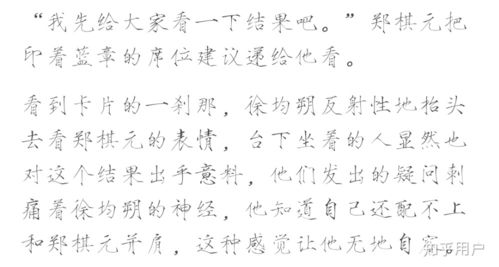 “我先给大家看一下结果吧。”郑棋元把
印着蓝章的席位建议递给他看。
看到卡片的一刹那，徐均朔反射性地抬头
去看郑棋元的表情，台下坐着的人显然也
对这个结果出乎意料，他们发出的疑问刺
痛着徐均朔的神经，他知道自己还配不上
和郑棋元并肩，这种感觉让他无地自容。
知乎用户